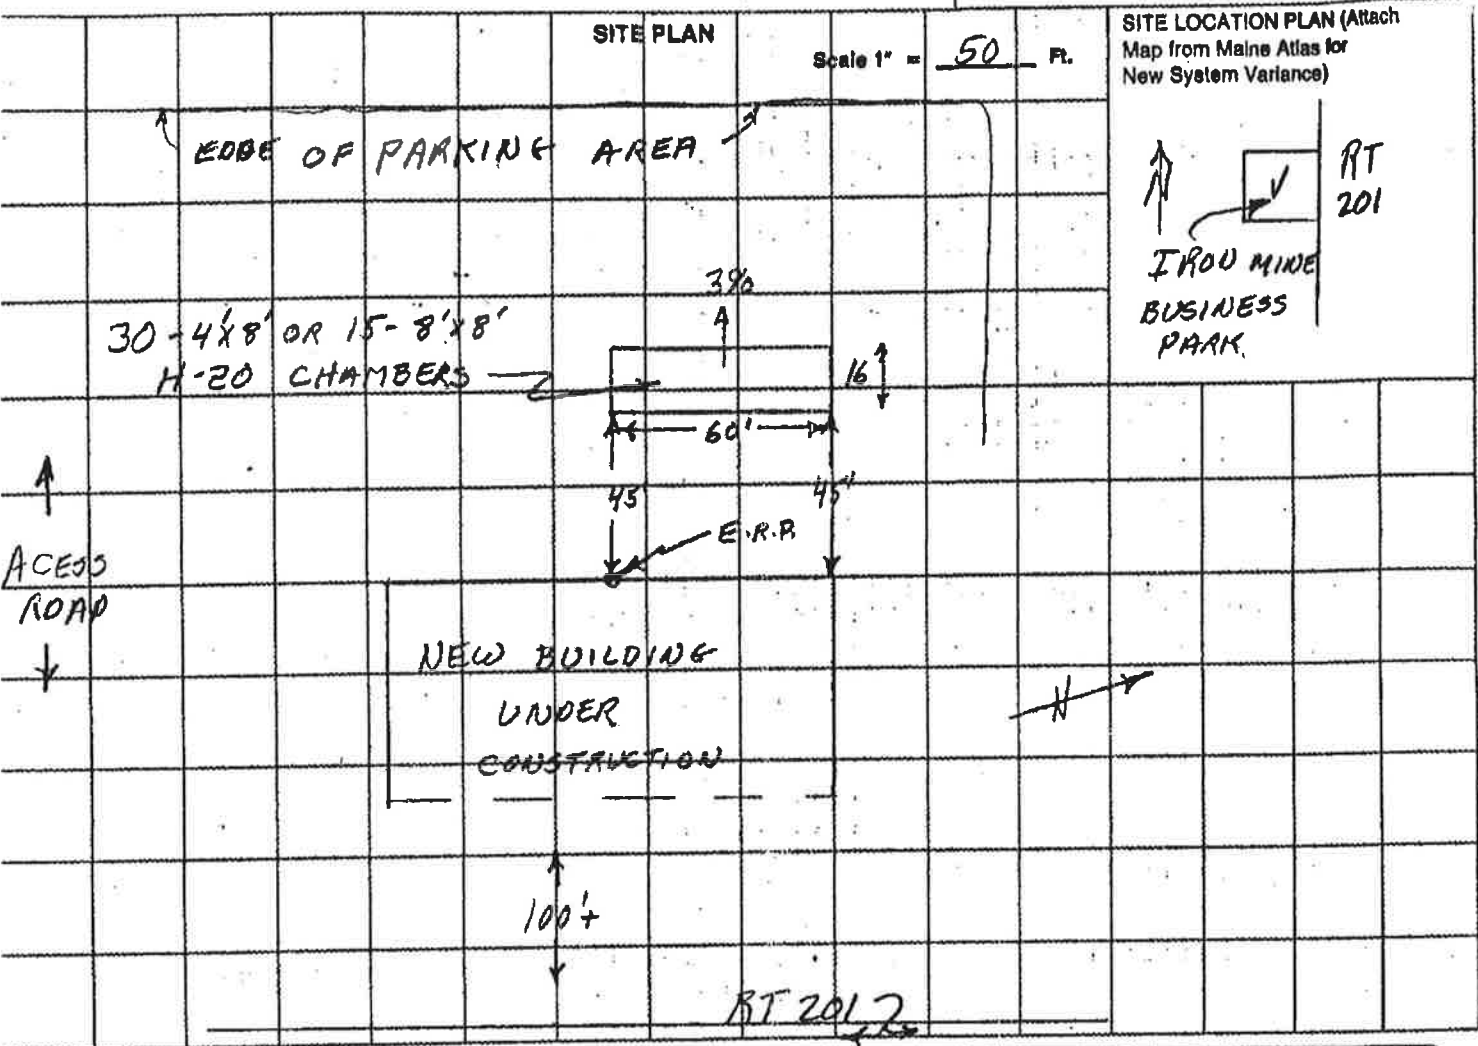 SITE PLAN
Scale 1" = 50 Ft.
SITE LOCATION PLAN (Attach
Map from Maine Atlas for
New System Variance)
EDGE OF PARKING AREA
N
RT
201
IRON MINE
BUSINESS
PARK.
3%
30-4'X8' OR 15-8'X8'
H-20 CHAMBERS
16'
60'
45'
45'
E.R.P.
ACESS
ROAD
NEW BUILDING
UNDER
CONSTRUCTION
N
100'+
RT 201